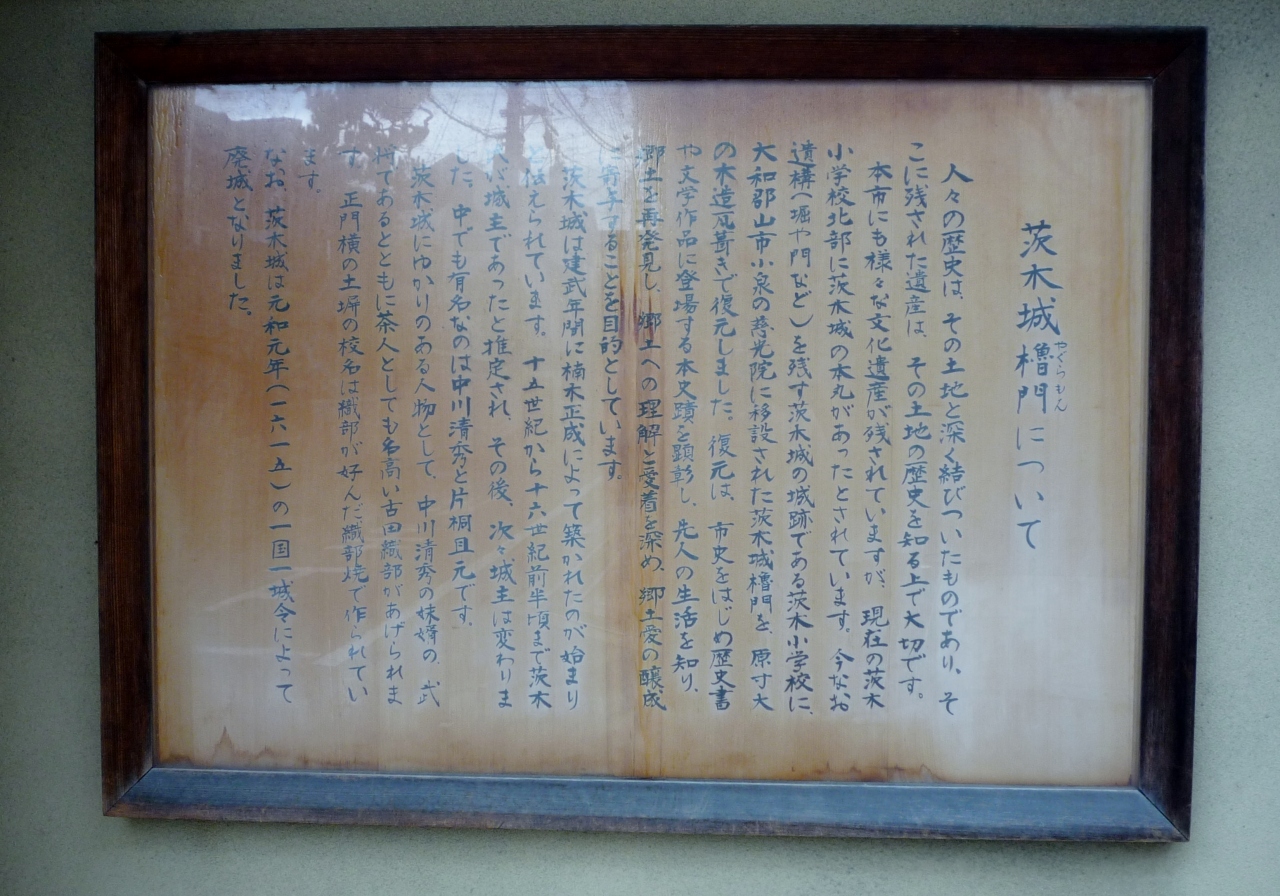 茨木城櫓門について
やぐらもん
人々の歴史は、その土地と深く結びついたものであり、そ
こに残された遺産は、その土地の歴史を知る上で大切です。
本市にも様々な文化遺産が残されていますが、現在の茨木
小学校北部に茨木城の本丸があったとされています。今なお
遺構(堀や門など)を残す茨木城の城跡である茨木小学校に、
大和郡山市小泉の慈光院に移設された茨木城櫓門を、原寸大
の木造瓦葺きで復元しました。復元は、市史をはじめ歴史書
や文学作品に登場する本史蹟を顕彰し、先人の生活を知り、
郷土を再発見し、郷土への理解と愛着を深め、郷土愛の醸成
に寄与することを目的としています。
茨木城は建武年間に楠木正成によって築かれたのが始まり
と伝えられています。十五世紀から十六世紀前半頃まで茨木
氏が城主であったと推定され、その後、次々城主は変わりま
した。中でも有名なのは中川清秀と片桐且元です。
茨木城にゆかりのある人物として、中川清秀の妹婿の、武
将であるとともに茶人としても名高い古田織部があげられま
す。正門横の土塀の校名は織部が好んだ織部焼で作られてい
ます。
なお、茨木城は元和元年(一六一五)の一国一城令によって
廃城となりました。